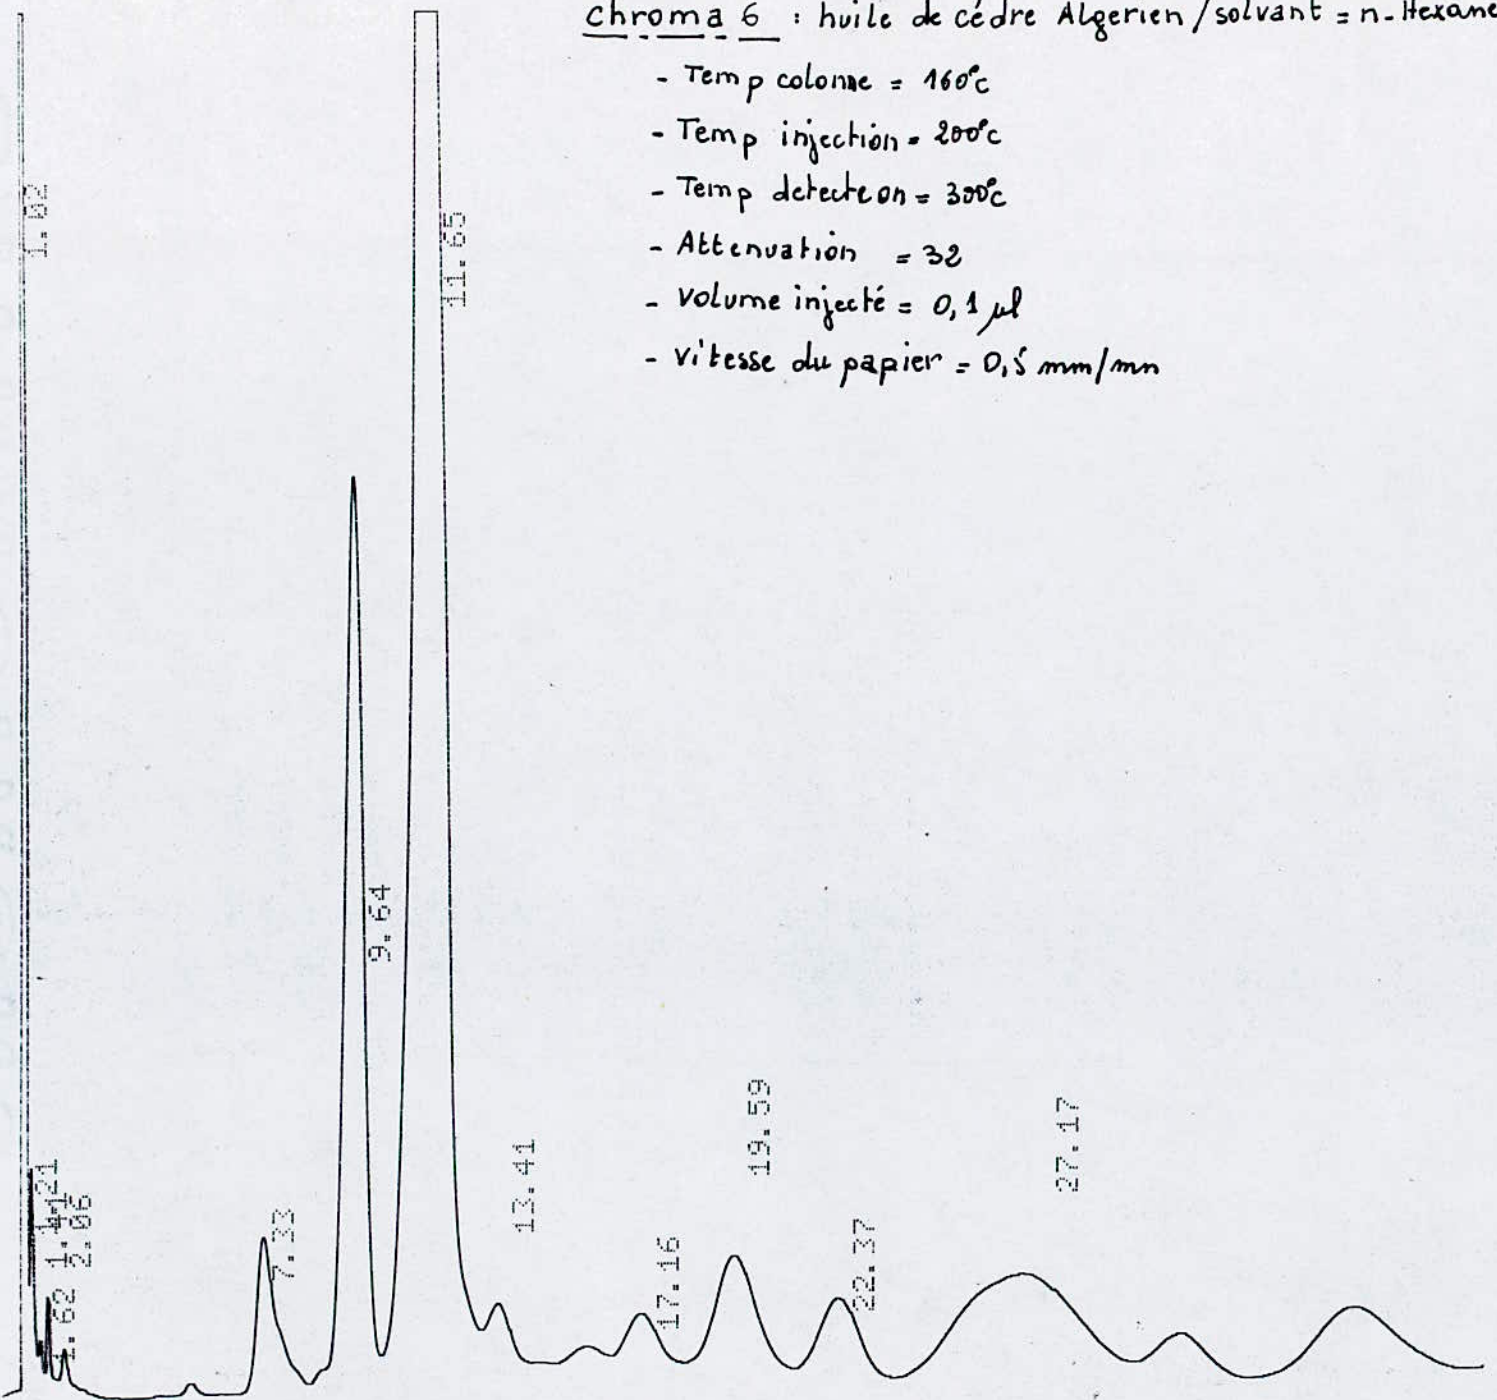 Chroma 6 : huile de cédre Algerien / solvant = n-Hexane
- Temp colonne = 160°c
- Temp injection = 200°c
- Temp detecteon = 300°c
- Attenuation = 32
- Volume injecté = 0,1 µl
- Vitesse du papier = 0,5 mm/mn
1.02
11.65
9.64
19.59
27.17
13.41
1.21
1.41
2.06
7.33
22.37
17.16
1.62